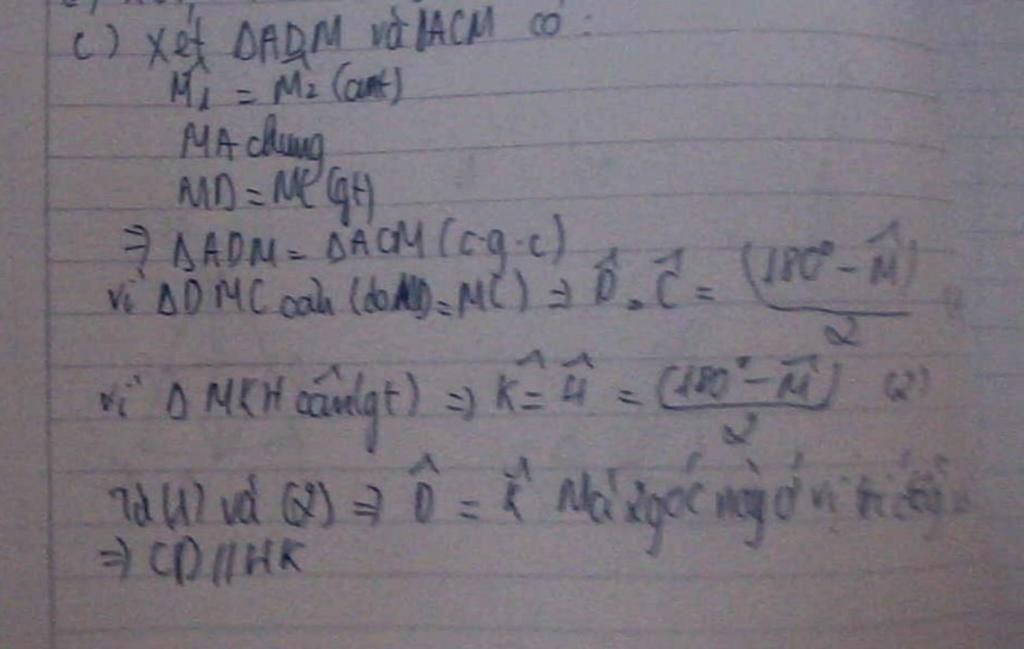 c) xét ΔADM và ΔACM có:
M̂₁ = M₂ (cmt)
MA chung
MD = MC (gt)
⇒ ΔADM = ΔACM (c.g.c)
vì ΔDMC cân (do MD = MC) ⇒ D̂ = Ĉ = (180° - M̂)/2
vì ΔMKH cân (gt) ⇒ K̂ = Ĥ = (180° - M̂)/2 (2)
Từ (1) và (2) ⇒ D̂ = K̂ Mà 2 góc này ở vị trí
⇒ CD // HK